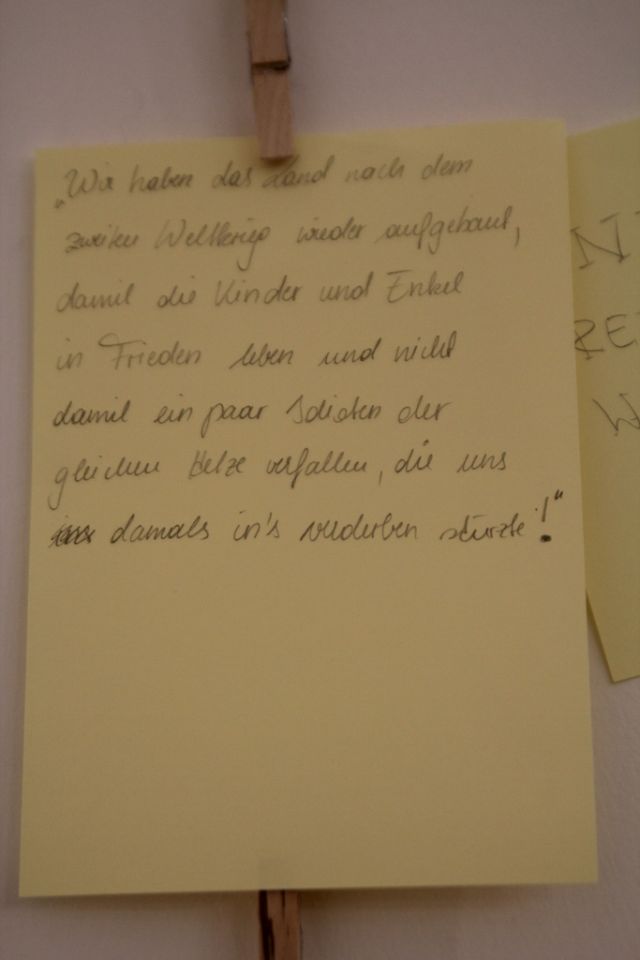 „Wir haben das Land nach dem
zweiten Weltkrieg wieder aufgebaut,
damit die Kinder und Enkel
in Frieden leben und nicht
damit ein paar Idioten der
gleichen Hetze verfallen, die uns
damals in's verderben stürzte!“
N
RE
W